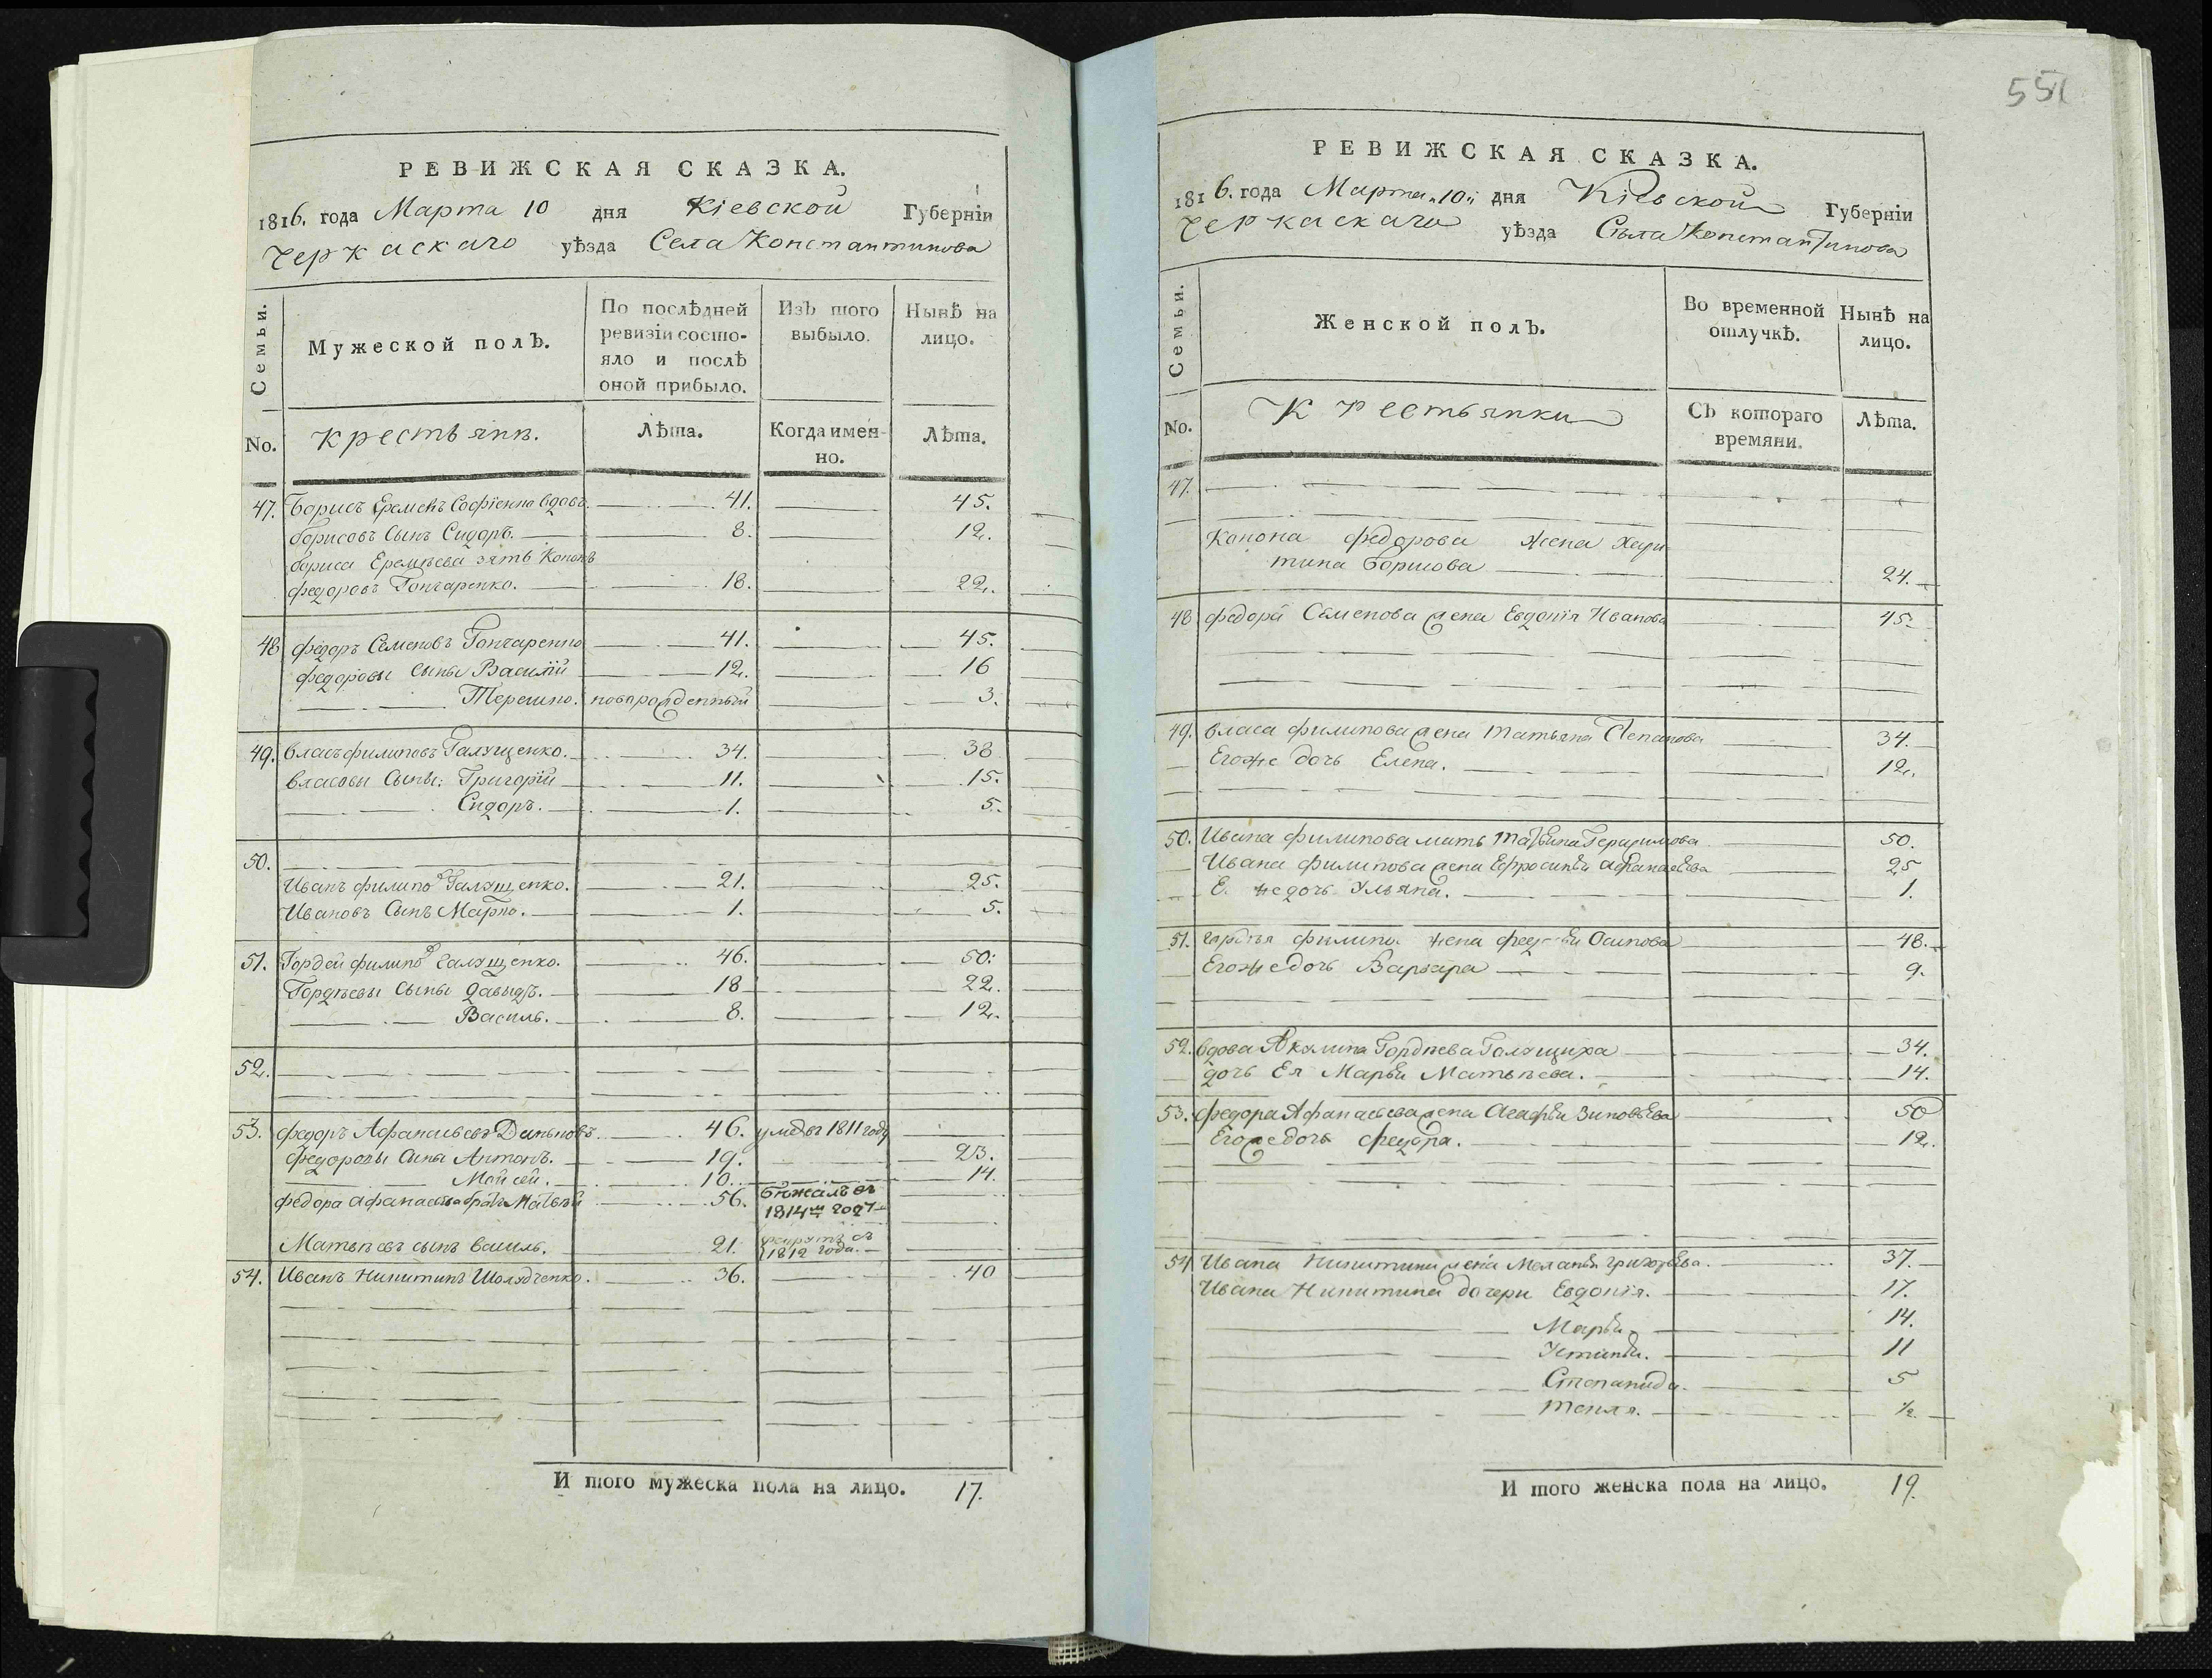 551
РЕВИЖСКАЯ СКАЗКА.
1816. года Марта 10 дня Кіевской Губерніи
Черкаскаго уѣзда Села Константинова
Семьи.
Мужеской полъ.
По послѣдней ревизіи состо-
яло и послѣ
оной прибыло.
Изъ того
выбыло.
Нынѣ на
лицо.
No.
Крестьянъ.
Лѣта.
Когда имен-
но.
Лѣта.
47. Борисъ Софіенко вдовъ. 41. 45.
Борисовъ Сынъ Сидоръ. 8. 12.
Бориса Еремѣева зять Кононъ
Федоровъ Гончаренко. 18. 22.
48 Федоръ Семеновъ Гончаренко 41. 45.
Федоровы Сыны Василій 12. 16
Терешко. новорожденный 3.
49. Власъ Филиповъ Галущенко. 34. 38
Власовы Сыны: Григорій 11. 15.
Сидоръ. 1. 5.
50.
Иванъ Филиповъ Галущенко. 21. 25.
Ивановъ Сынъ Марко. 1. 5.
51. Гордей Филиповъ Галущенко. 46. 50.
Гордѣевы Сыны Давыдъ. 18 22.
Василь. 8. 12.
52.
53. Федоръ Афанасьевъ 46. умре въ 1811 году
Федоровы Сыны Антонъ. 19. 23.
Мойсей. 10. 14.
Федора Афанасьева братъ Матвѣй 56. бѣжалъ въ
1814м году
Матвѣевъ сынъ Василь. 21. рекрутъ съ
1812 года.
54. Иванъ Никитинъ 36. 40
И того мужеска пола на лицо. 17.
РЕВИЖСКАЯ СКАЗКА.
1816. года Марта 10 дня Кіевской Губерніи
Черкаскаго уѣзда Села Константинова
Семьи.
Женской полъ.
Во временной
отлучкѣ.
Нынѣ на
лицо.
No.
Крестьянки
Съ котораго
времяни.
Лѣта.
47.
Конона Федорова жена Хари-
тина Борисова 24.
48 Федора Семенова жена Евдокія Иванова 45.
49. Власа Филипова жена Татьяна Степанова 34.
Егоже дочь Елена. 12.
50. Ивана Филипова мать Герасимова 50.
Ивана Филипова жена Ефросинья Афанасьева 25
Егоже дочь Ульяна. 1.
51. Гордѣя Филипова жена Осипова 48.
Егоже дочь Варвара 9.
52. вдова Акулина Гордѣева Галущиха 34.
дочь Ея Марья Матвѣева. 14.
53. Федора Афанасьева жена Агафья Зиновьева 50
Егоже дочь Федора. 12.
54 Ивана Никитина жена Меланья Григорьева. 37.
Ивана Никитина дочери Евдокія. 17.
Марья. 14.
Устинья. 11
Степанида. 5
Текля. ½.
И того женска пола на лицо. 19.